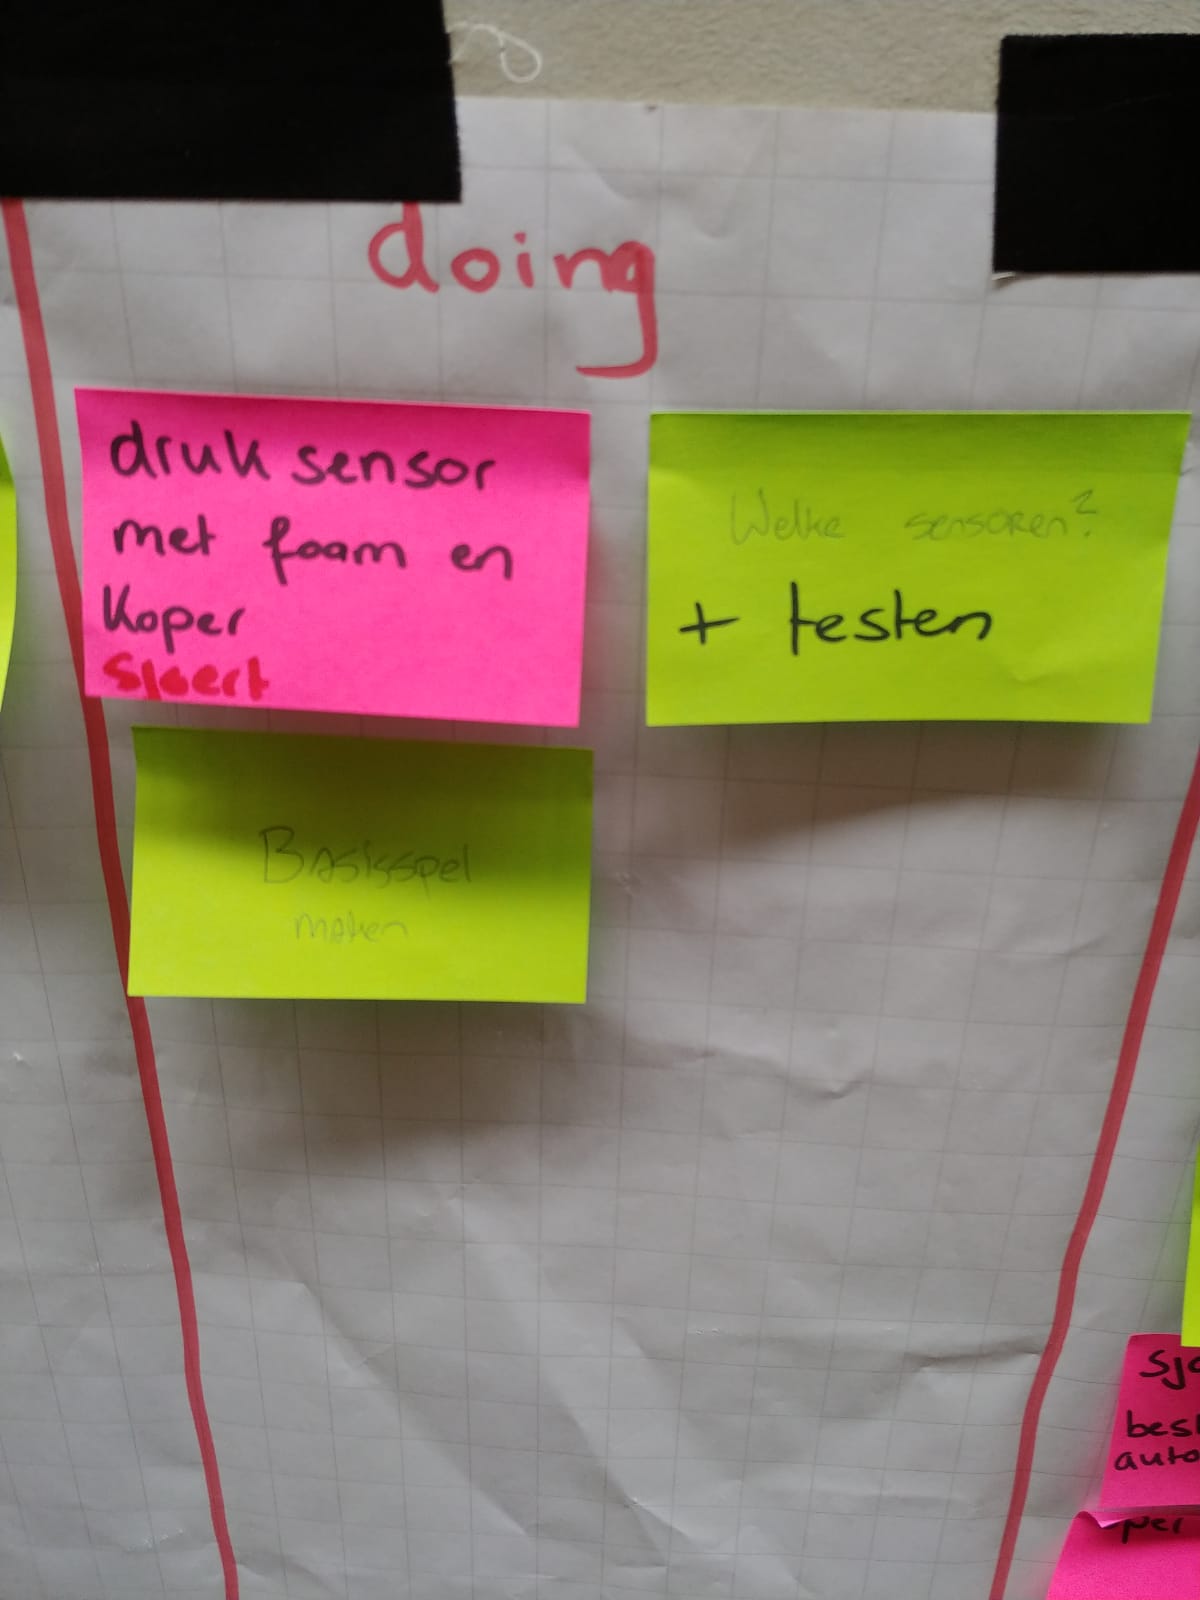 doing
druk sensor
met foam en
koper
Sjoert
Welke sensoren?
+ testen
Basisspel
maken